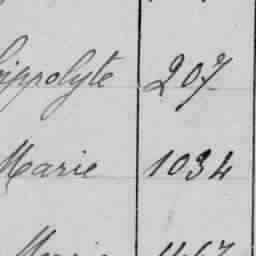 ippolyte 207
Marie 1034